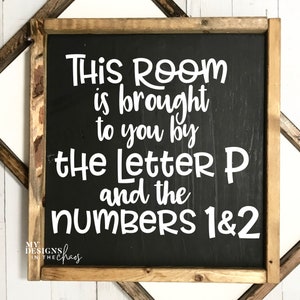 THIS ROOM
is brought
to you by
the Letter P
and the
numbers 1&2
MY
DESIGNS
IN THE chaos